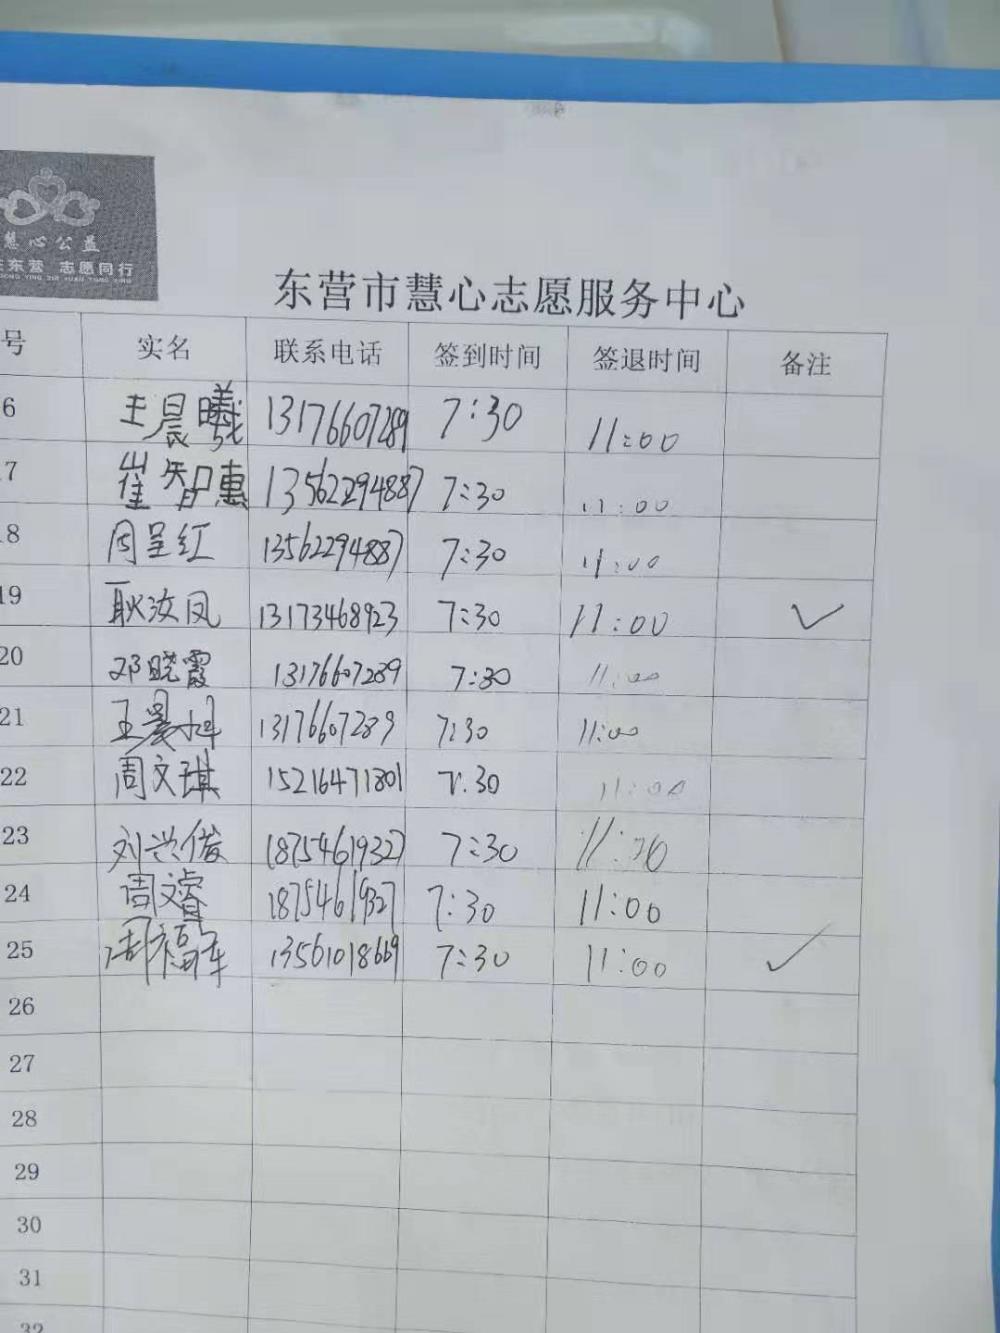 慧心公益
东营 志愿同行
东营市慧心志愿服务中心
号 实名 联系电话 签到时间 签退时间 备注
6 王晨曦 13176607289 7:30 11:00
7 崔智惠 13562294887 7:30 11:00
8 周呈红 13562294887 7:30 11:00
19 耿汝凤 13173468923 7:30 11:00 ✓
20 邓晓霞 13176607289 7:30 11:00
21 王晨旭 13176607289 7:30 11:00
22 周文琪 15216471801 7:30 11:00
23 刘兴俊 18754619327 7:30 11:00
24 周文睿 18754619327 7:30 11:00
25 周福军 13561018669 7:30 11:00 ✓
26
27
28
29
30
31
32